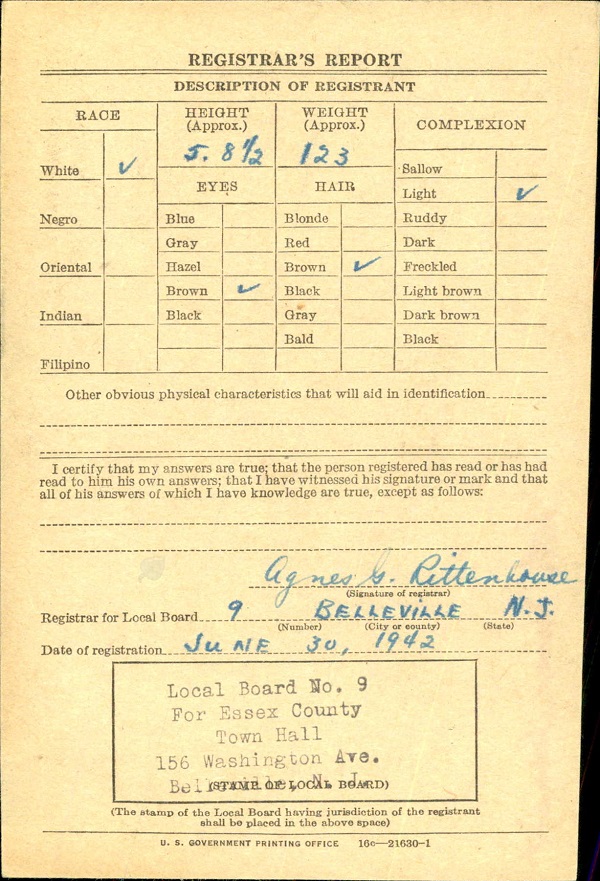 REGISTRAR'S REPORT
DESCRIPTION OF REGISTRANT
RACE
HEIGHT (Approx.)
WEIGHT (Approx.)
COMPLEXION
5. 8 1/2
123
White ✓
Sallow
EYES
HAIR
Light ✓
Negro
Blue
Blonde
Ruddy
Gray
Red
Dark
Oriental
Hazel
Brown ✓
Freckled
Brown ✓
Black
Light brown
Indian
Black
Gray
Dark brown
Bald
Black
Filipino
Other obvious physical characteristics that will aid in identification
I certify that my answers are true; that the person registered has read or has had
read to him his own answers; that I have witnessed his signature or mark and that
all of his answers of which I have knowledge are true, except as follows:
Agnes G. Rittenhouse
(Signature of registrar)
Registrar for Local Board 9 BELLEVILLE N.J.
(Number) (City or county) (State)
Date of registration JUNE 30, 1942
Local Board No. 9
For Essex County
Town Hall
156 Washington Ave.
Belleville, N. J.
(STAMP OF LOCAL BOARD)
(The stamp of the Local Board having jurisdiction of the registrant
shall be placed in the above space)
U. S. GOVERNMENT PRINTING OFFICE 16c—21630-1